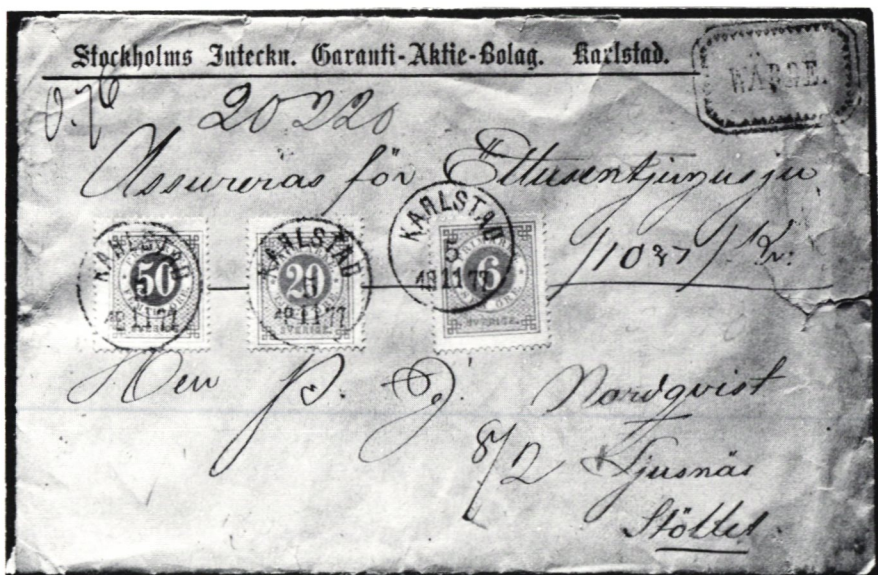 Stockholms Inteckn. Garanti-Aktie-Bolag. Karlstad.
WÄRDE.
0.76
20220
Assureras för Ettusentjugusju
/1027/ Kr.
KARLSTAD
50
SVERIGE.
KARLSTAD
20
SVERIGE.
KARLSTAD
5
6
SVERIGE.
Herr P. J. Nordqvist
8/2 Ljusnäs
Stöllet.